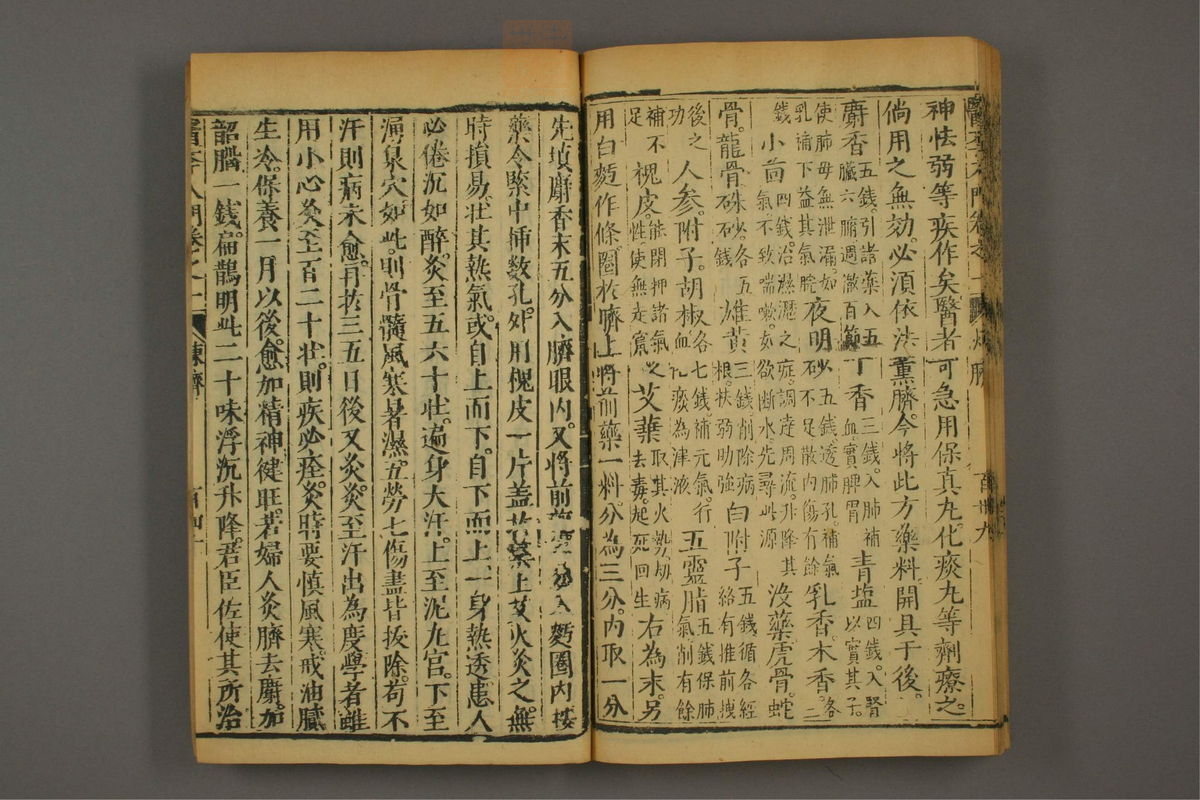 醫學入門卷之一 煉臍
神怯弱等疾作矣醫者可急用保真丸化痰丸等劑療之
倘用之無効必須依法薰臍今將此方藥料開具于後
麝香五錢引諸藥入五臟六腑週澈百節丁香三錢入肺補血實脾胃青塩四錢入腎以實其子
使肺母無泄漏如乳補下益其氣脘夜明砂五錢透肺孔補氣不足散內傷有餘乳香木香各二
錢小茴四錢治濕瀝之症調達周流升降其氣不致喘嗽如欲斷水先尋此源沒藥虎骨蛇
骨龍骨硃砂各五錢雄黃三錢削除病根扶弱助強白附子五錢循各經絡有推前拽
後之功人參附子胡椒各七錢補元氣行血化痰為津液五靈脂五錢保肺氣削有餘
補不足槐皮能閉押諸氣性使無走竄之艾葉取其火勢劫病去毒起死回生右為末另
用白麪作條圈於臍上將前藥一料分為三分內取一分
先填麝香末五分入臍眼內又將前藥入麪圈內按
藥令緊中揷數孔外用槐皮一片盖於藥上艾火灸之無
時損易壯其熱氣或自上而下自下而上一身熱透患人
必倦沉如醉灸至五六十壯遍身大汗上至泥丸宮下至
湧泉穴如此則骨髓風寒暑濕五勞七傷盡皆拔除苟不
汗則病未愈再於三五日後又灸灸至汗出為度學者雖
用小心灸至百二十壯則疾必痊灸時要慎風寒戒油膩
生冷保養一月以後愈加精神健旺若婦人灸臍去麝加
韶腦一錢扁鵲明此二十味浮沉升降君臣佐使其所治
醫學入門卷之一 煉臍